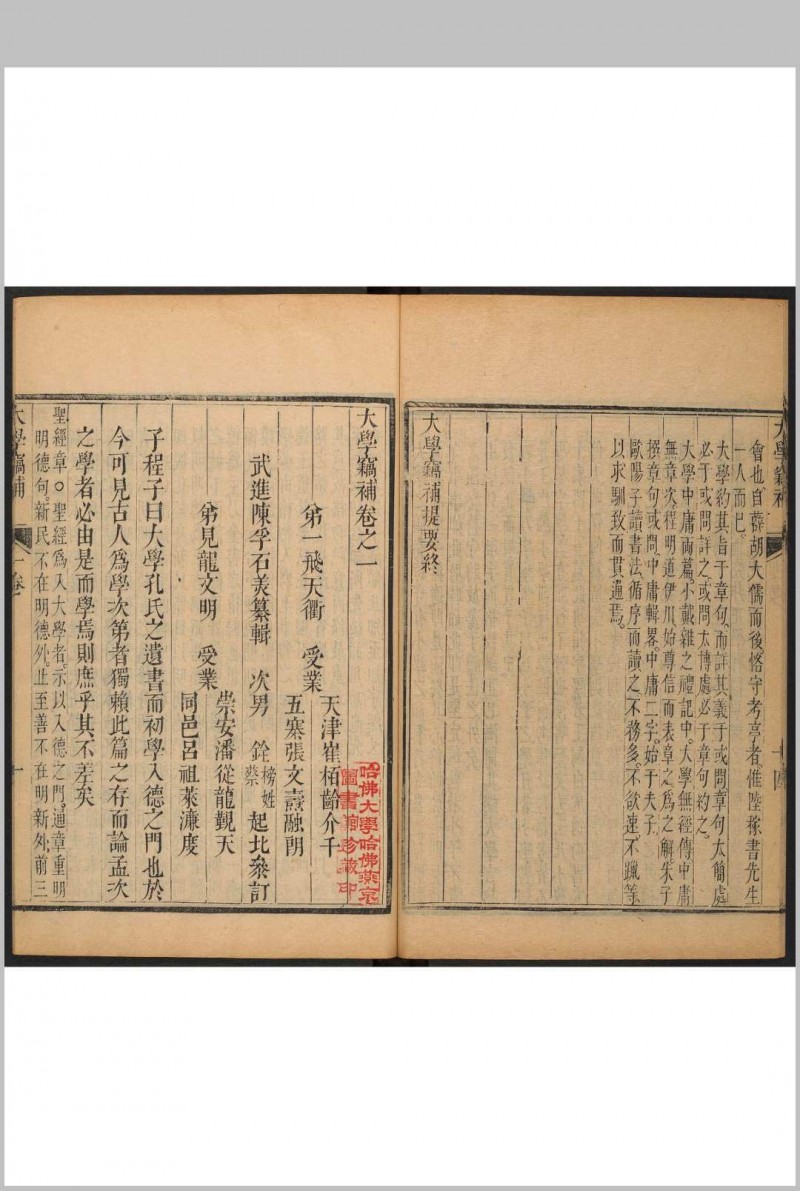 大學竊補
會也自薛胡大儒而後恪守考亭者惟陸稼書先生
一人而已
大學約其旨于章句而詳其義于或問章句太簡處
必于或問詳之或問太博處必于章句約之
大學中庸兩篇小戴雜之禮記中大學無經傳中庸
無章次程明道伊川始尊信而表章之為之解朱子
撰章句或問中庸輯畧中庸二字始于夫子
歐陽子讀書法循序而讀之不務多不欲速不躐等
以求馴致而貫通焉
大學竊補提要終
大學竊補卷之一
天津崔栢齡介千
弟一飛天衢 受業
五寨張文壽融朗
武進陳孚石羙纂輯 次男 銓榜姓蔡起北參訂
崇安潘從龍觀天
弟見龍文明 受業
同邑呂祖萊濂度
子程子曰大學孔氏之遺書而初學入德之門也於
今可見古人爲學次第者獨賴此篇之存而論孟次
之學者必由是而學焉則庶乎其不差矣
聖經章○聖經爲入大學者示以入德之門通章重明
明德句新民不在明德外止至善不在明新外前三
大學竊補 卷一 一
哈佛大學哈佛燕京
圖書館珍藏印